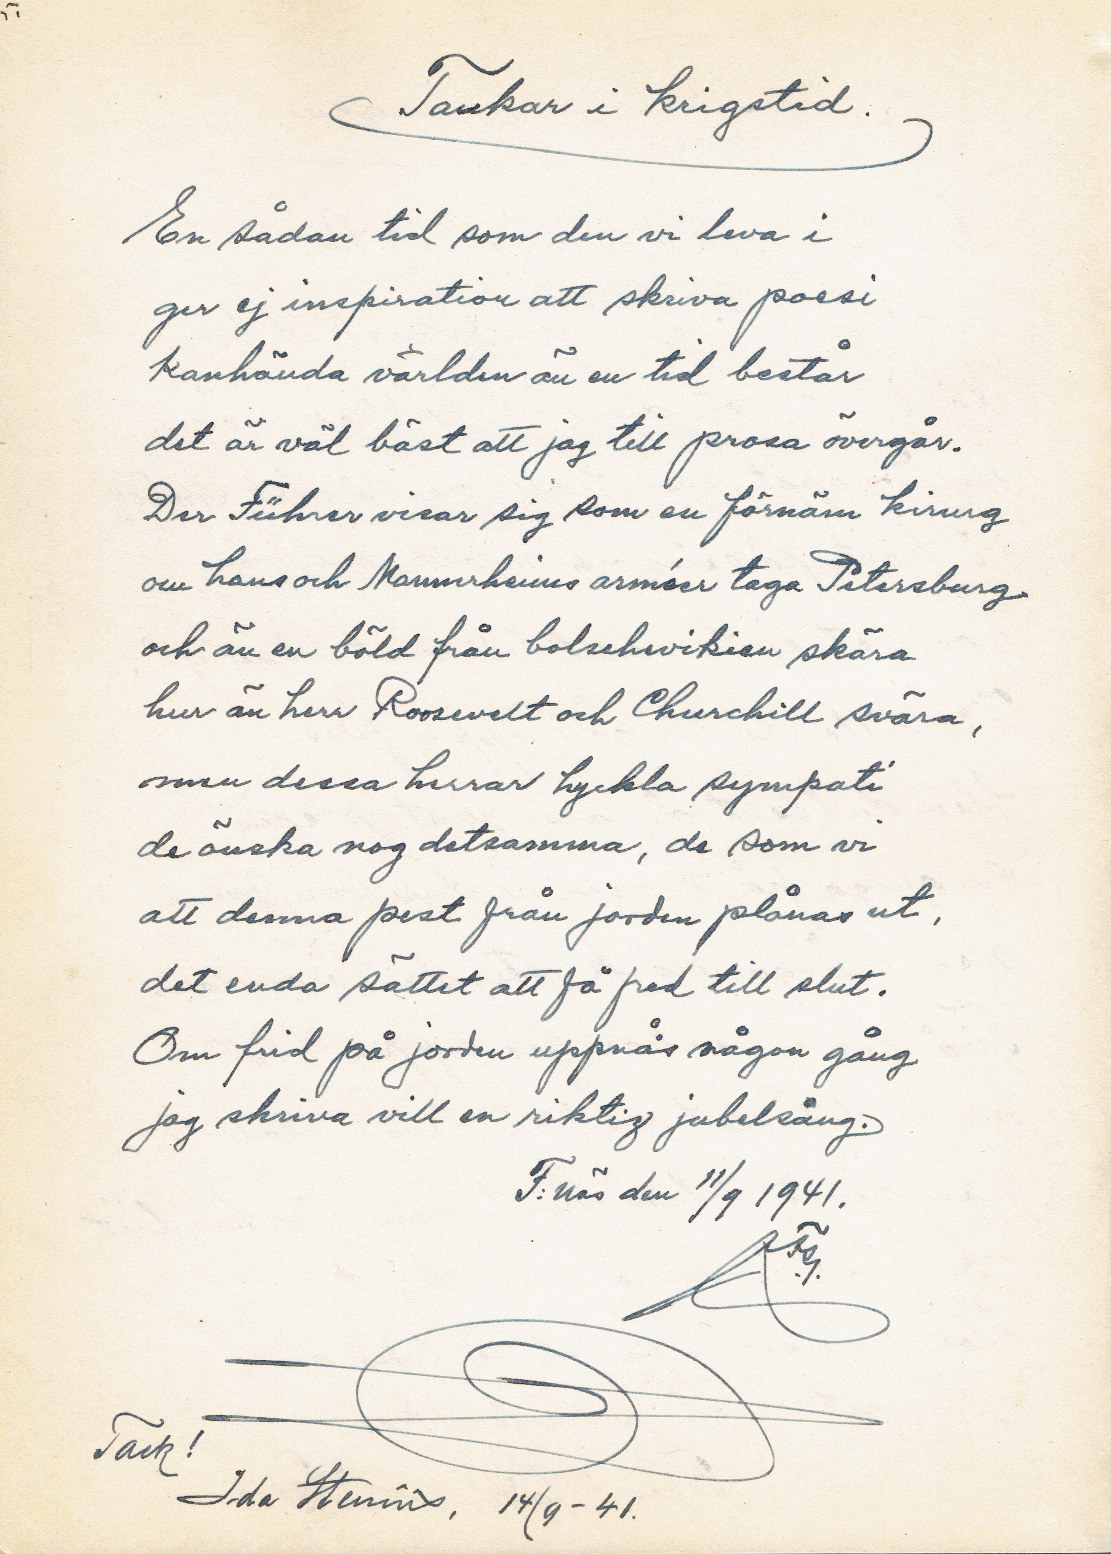 Tankar i krigstid.
En sådan tid som den vi leva i
ger ej inspiration att skriva poesi
kanhända världen än en tid består
det är väl bäst att jag till prosa övergår.
Der Führer visar sig som en förnäm kirurg
om hans och Mannerheims arméer taga Petersburg
och än en böld från bolschevikien skära
hur än herr Roosevelt och Churchill svära,
men dessa herrar hyckla sympati
de önska nog detsamma, de som vi
att denna pest från jorden plånas ut,
det enda sättet att få fred till slut.
Om frid på jorden uppnås någon gång
jag skriva vill en riktig jubelsång.
F:näs den 11/9 1941.
Tack!
Ida 14/9-41.